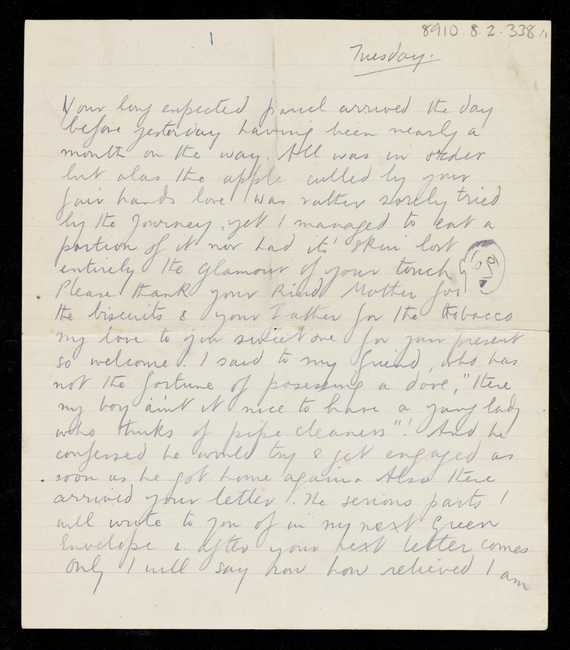 8910.8.2.338/1
1
Tuesday.
Your long expected parcel arrived the day
before yesterday having been nearly a
month on the way. All was in order
but alas the apple culled by your
fair hands love! was rather sorely tried
by the journey, yet I managed to eat a
portion of it nor had its' skin lost
entirely the glamour of your touch
Please thank your kind Mother for
the biscuits & your Father for the tobacco
my love to you sweet one for your present
so welcome. I said to my friend, who has
not the fortune of posessing a dove, "there
my boy ain't it nice to have a young lady
who thinks of pipe cleaners"! And he
confessed he would try & get engaged as
soon as he got home again. Also there
arrived your letter. The serious parts I
will write to you of in my next Green
Envelope & after your next letter comes
only I will say now how relieved I am